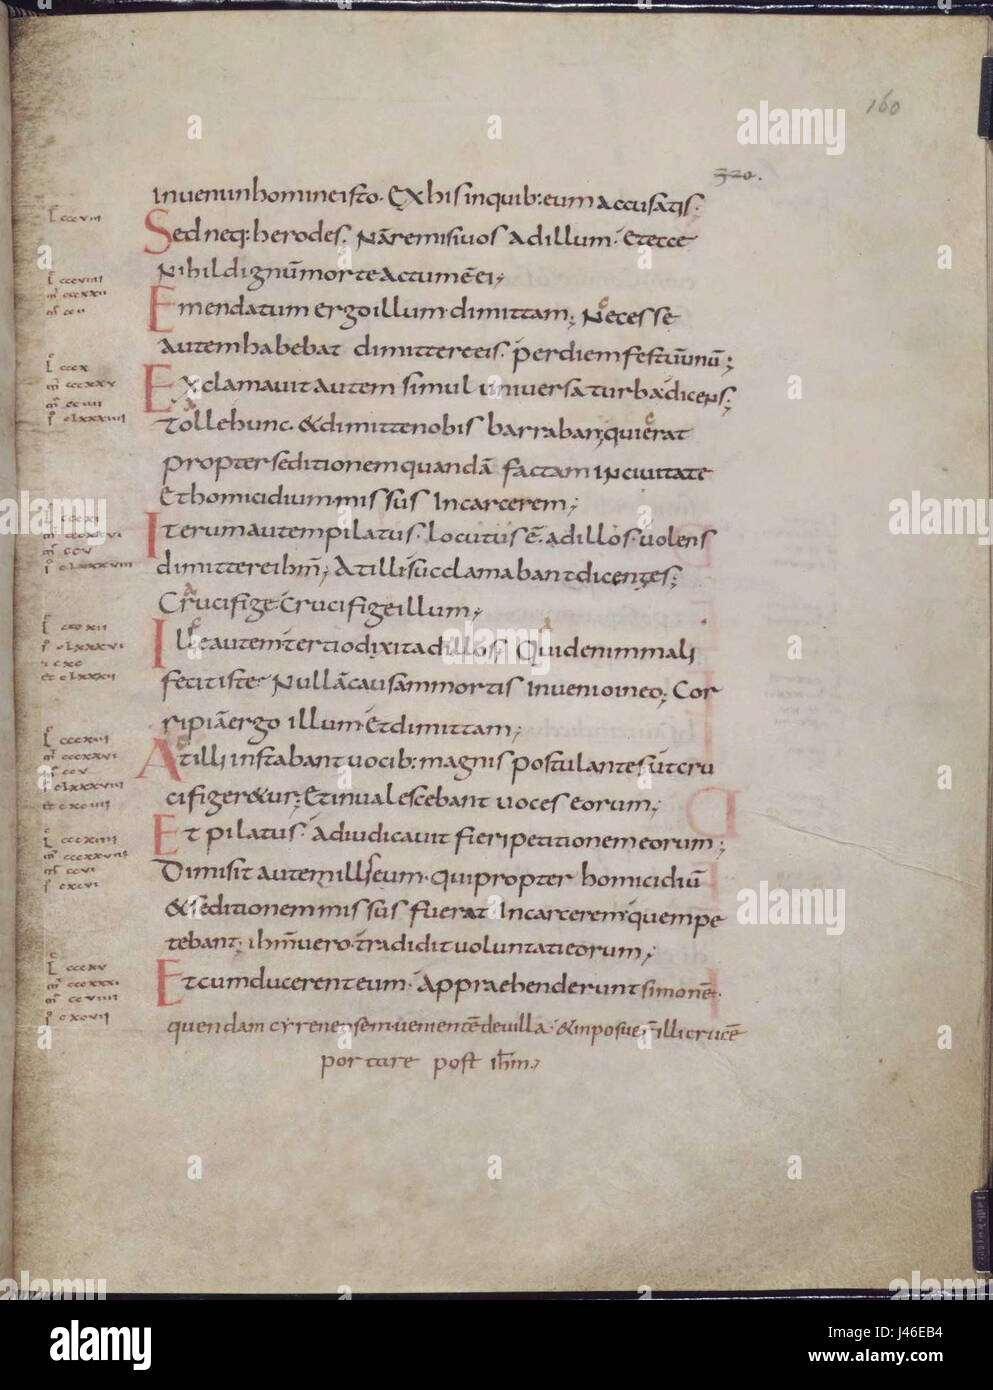 160
320.
inueni in homine isto. Ex his in quib: eum accusatis.
L cccviii
Sed neq: herodes. Nā remisi uos ad illum. Et ecce
Nihil dignū morte actum ē ei;
L cccviiii
mr cccxxii
Emendatum ergo illum dimittam; Necesse
autem habebat dimittere eis. per diem festū unū;
L cccx
mr cccxxv
mr cciiii
Exclamauit autem simul uniuersa turba dicens;
Tolle hunc. & dimitte nobis barraban; qui erat
propter seditionem quandā factam in ciuitate
Et homicidium missus In carcerem;
mr ccv
Iterum autem pilatus. Locutus ē. ad illos. uolens
dimittere ihm̄; At illi succlamabant dicentes;
Crucifige. Crucifige illum;
L cccxii
Ille autem tertio dixit ad illos; Quid enim mali
fecit iste. Nullā causam mortis Inuenio in eo; Cor
ripiā ergo illum. Et dimittam;
L cccxiii
mr cccxxvi
mr ccv
At illi instabant uocib: magnis postulantes ut cru
cifiger&ur; Et inualescebant uoces eorum;
L cccxiiii
mr ccvi
Et pilatus. adiudicauit fieri petitionem eorum;
Dimisit autem illis eum. qui propter homicidiū
& seditionem missus fuerat In carcerem. quem pe
tebant; ihm̄ uero. tradidit uoluntati eorum;
L cccxv
mr cccxxxi
mr ccviiii
Et cum ducerent eum. Appraehenderunt simonē.
quendam cyrenensem. uenientē de uilla. & inposuer̄ illi crucē
portare post ihm̄;
alamy stock photo
J46EB4
www.alamy.com